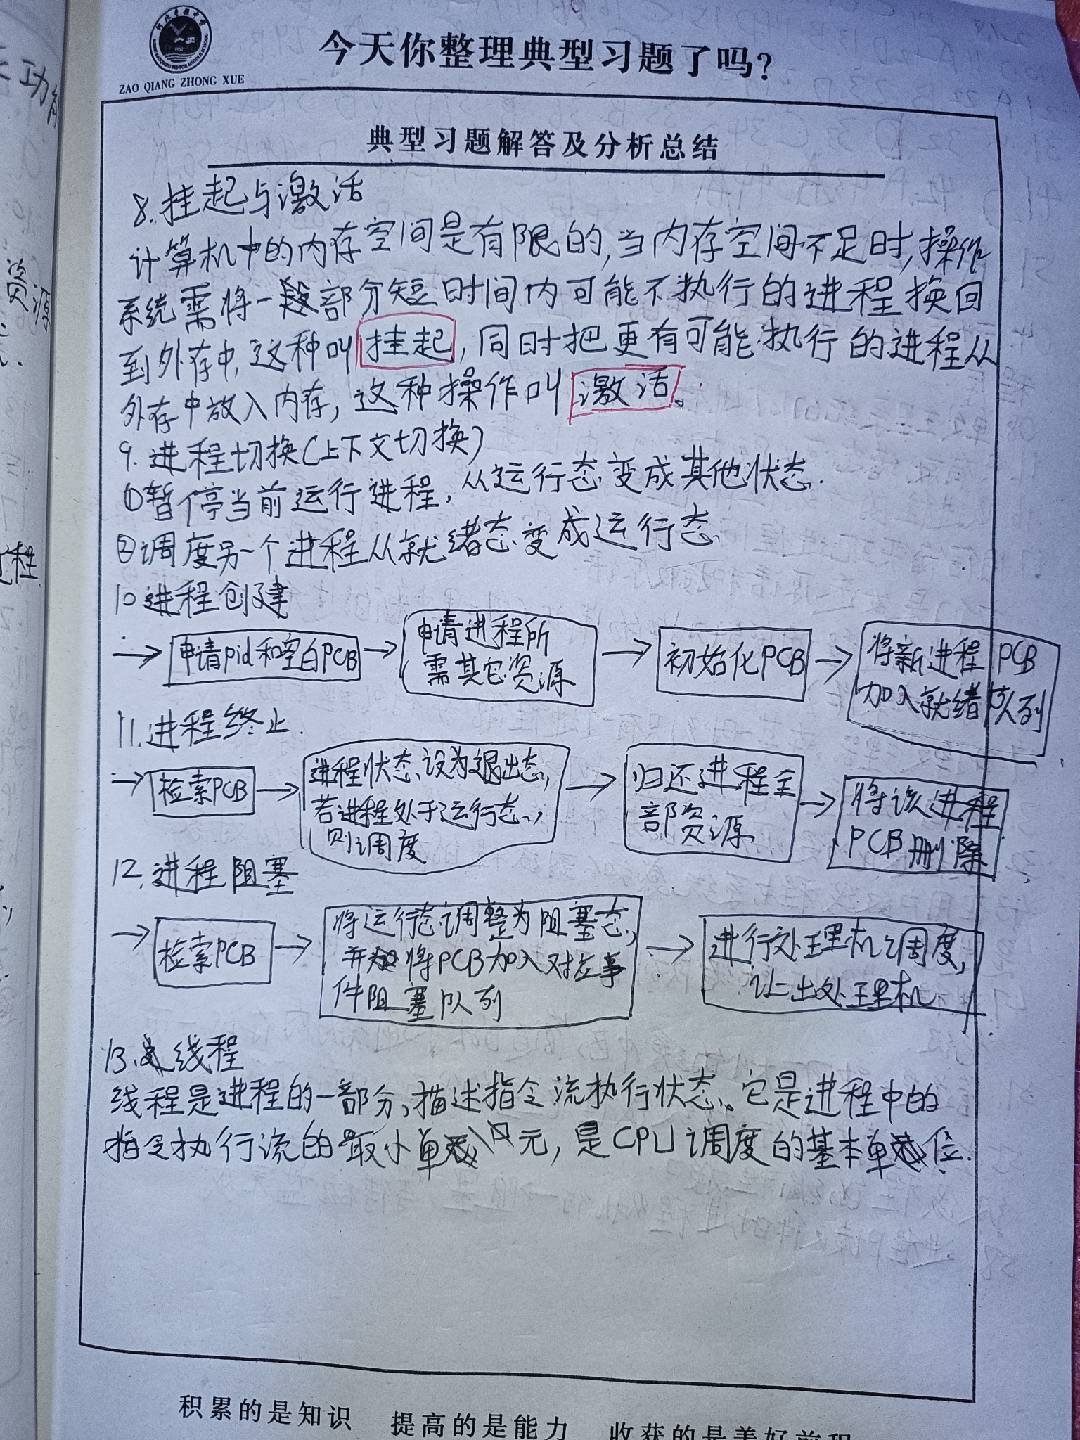 ZAO QIANG ZHONG XUE
今天你整理典型习题了吗?
典型习题解答及分析总结
8.挂起与激活
计算机中的内存空间是有限的,当内存空间不足时,操作
系统需将一段部分短时间内可能不执行的进程换回
到外存中,这种叫挂起,同时把更有可能执行的进程从
外存中放入内存,这种操作叫激活。
9.进程切换(上下文切换)
①暂停当前运行进程,从运行态变成其他状态.
②调度另一个进程从就绪态变成运行态
10进程创建
→申请pid和空白PCB→
申请进程所
需其它资源
→初始化PCB→
将新进程PCB
加入就绪队列
11.进程终止.
→检索PCB→
进程状态设为退出态,
若进程处于运行态,
则调度
→
归还进程全
部资源
→
将该进程
PCB删除
12.进程阻塞
→检索PCB→
将运行态调整为阻塞态,
并将PCB加入对应事
件阻塞队列
→
进行处理机调度,
让出处理机
13.线程
线程是进程的一部分,描述指令流执行状态。它是进程中的
指令执行流的最小单元,是CPU调度的基本单位.
积累的是知识 提高的是能力 收获的是美好前程
资源
进程